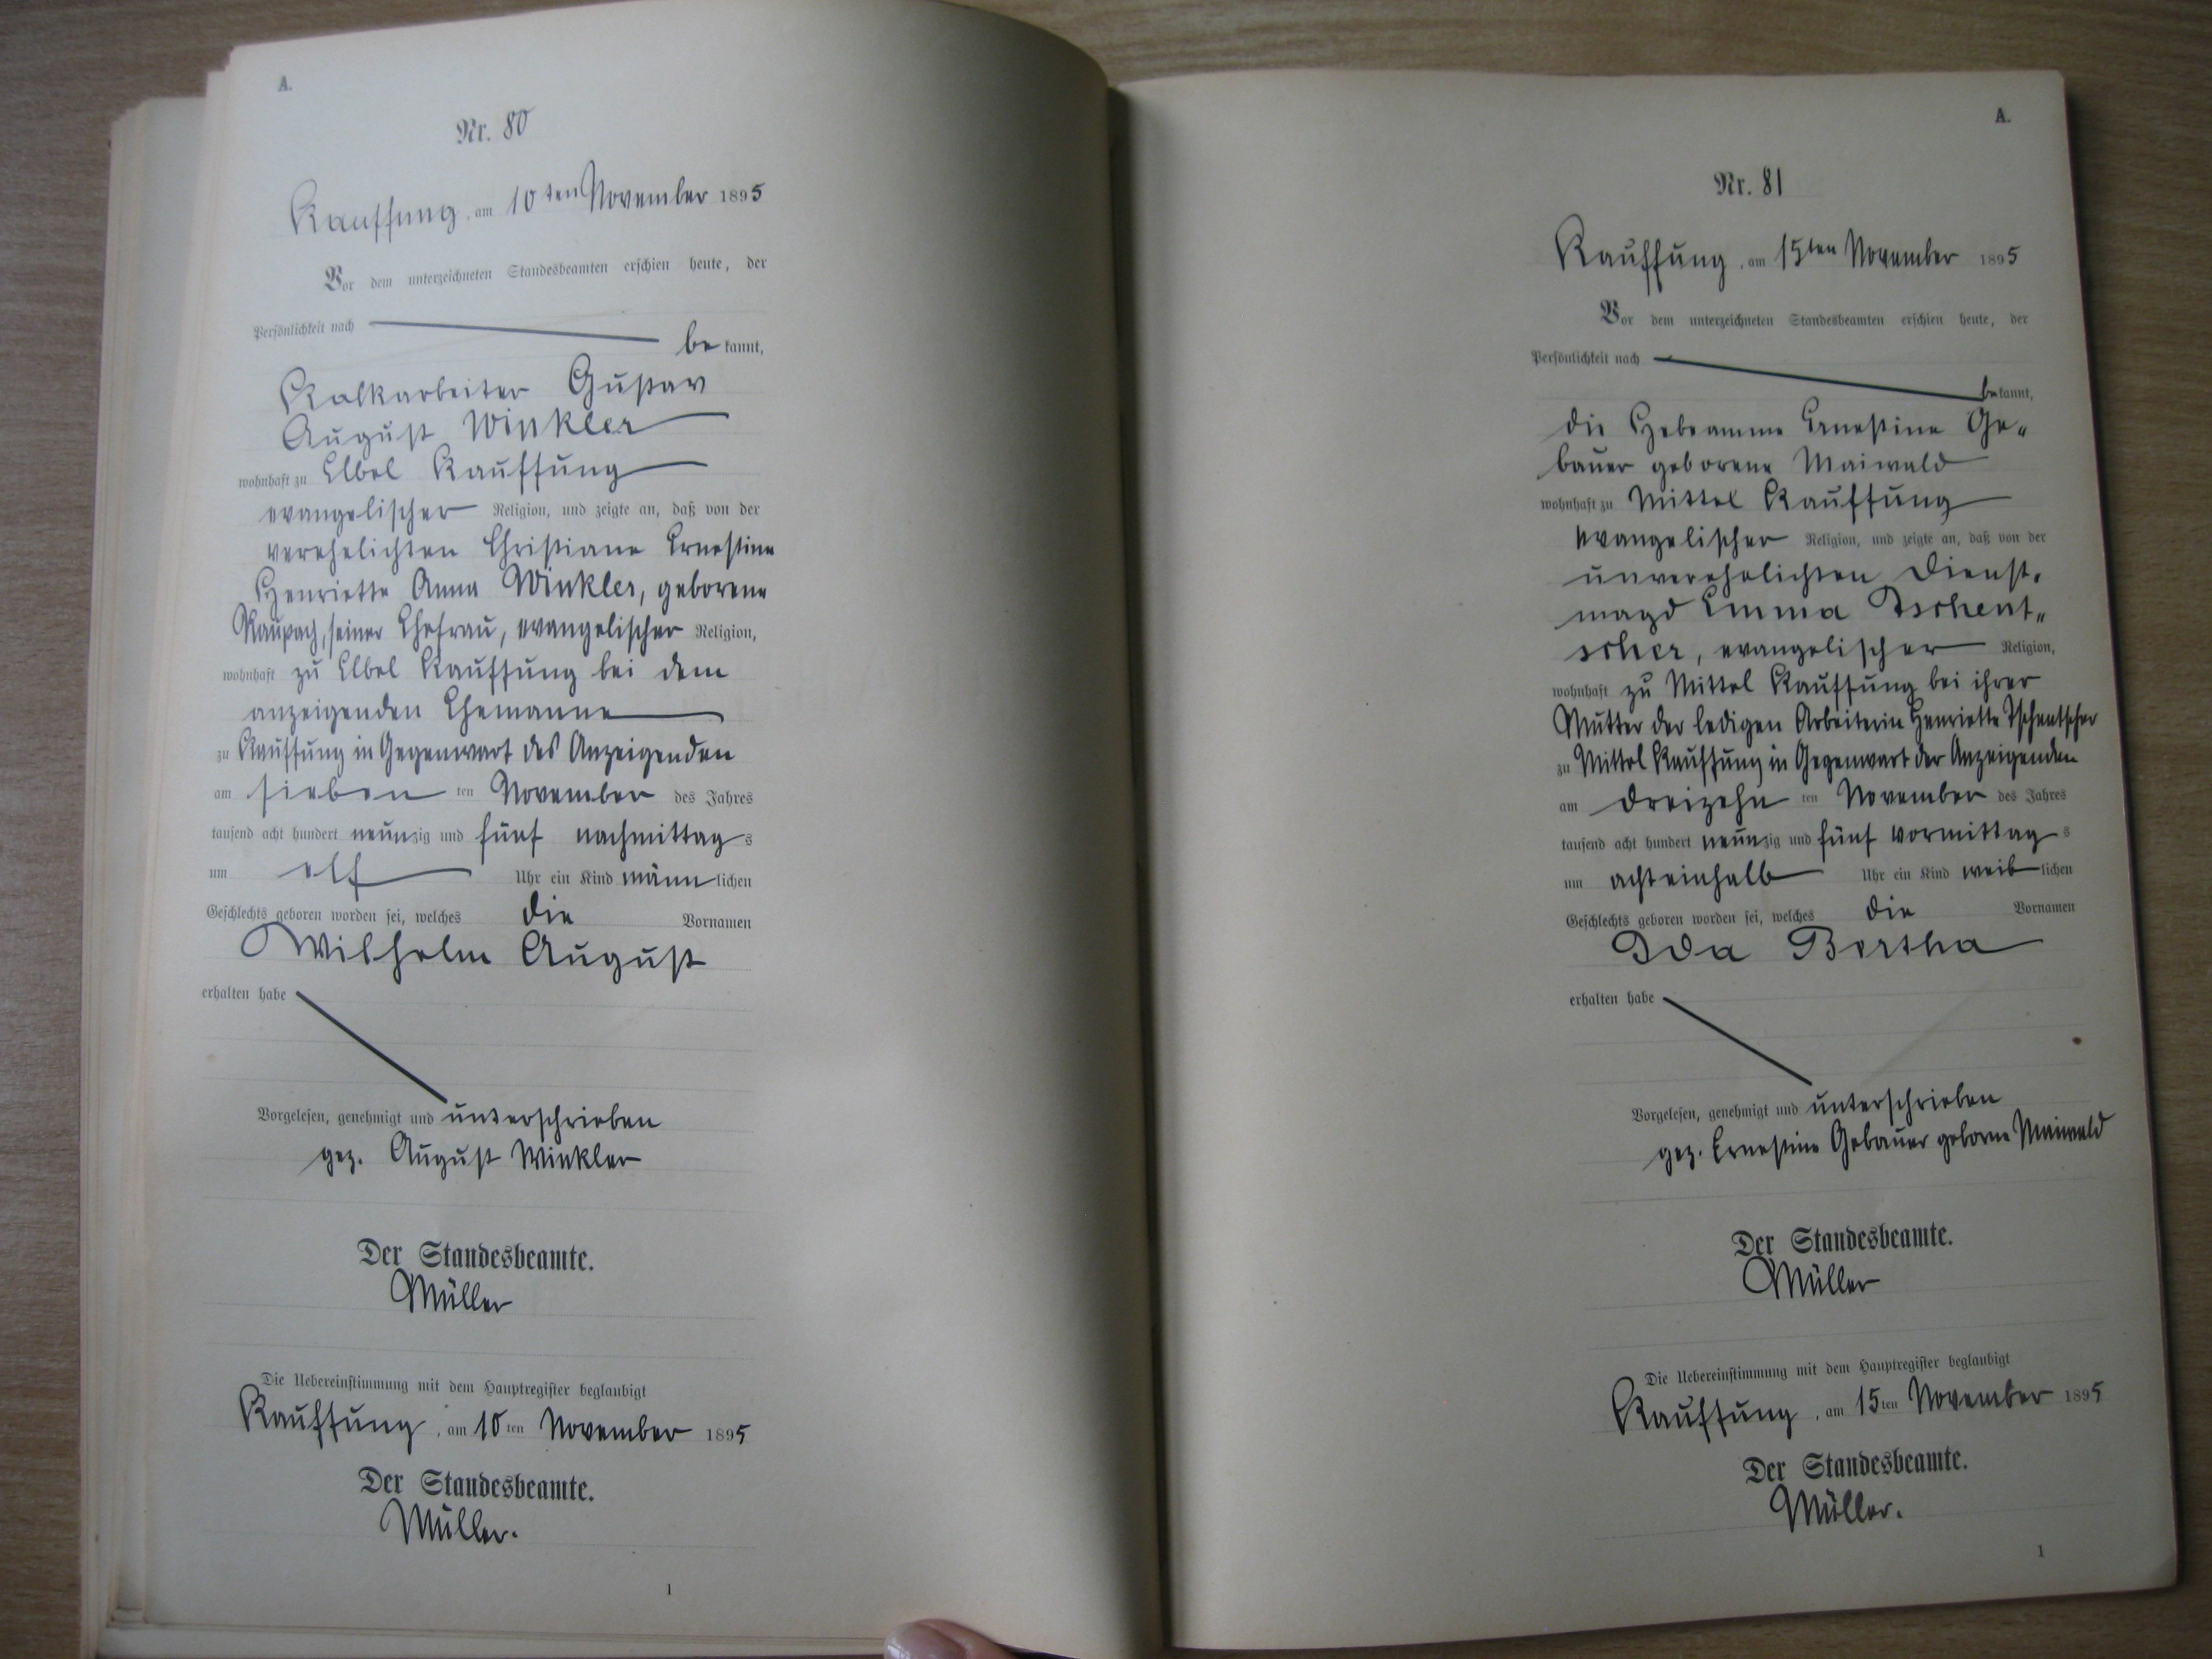 A.
Nr. 80
Kauffung, am 10ten November 1895
Vor dem unterzeichneten Standesbeamten erschien heute, der
Persönlichkeit nach
be kannt,
Kalkarbeiter Gustav
August Winkler
wohnhaft zu Elbel Kauffung
evangelischer Religion, und zeigte an, daß von der
verehelichten Christiane Ernestine
Henriette Anna Winkler, geborene
Raupach, seiner Ehefrau, evangelischer Religion,
wohnhaft zu Elbel Kauffung bei dem
anzeigenden Ehemanne
zu Kauffung in Gegenwart des Anzeigenden
am sieben ten November des Jahres
tausend acht hundert neunzig und fünf nachmittag s
um elf Uhr ein Kind männ lichen
Geschlechts geboren worden sei, welches die Vornamen
Wilhelm August
erhalten habe
Vorgelesen, genehmigt und unterschrieben
gez. August Winkler
Der Standesbeamte.
Müller
Die Uebereinstimmung mit dem Hauptregister beglaubigt
Kauffung, am 10ten November 1895
Der Standesbeamte.
Müller.
1
A.
Nr. 81
Kauffung, am 15ten November 1895
Vor dem unterzeichneten Standesbeamten erschien heute, der
Persönlichkeit nach
bekannt,
die Hebeamme Ernestine Ge-
bauer geborene Maiwald
wohnhaft zu Mittel Kauffung
evangelischer Religion, und zeigte an, daß von der
unverehelichten Dienst-
magd Emma Tschent-
scher, evangelischer Religion,
wohnhaft zu Mittel Kauffung bei ihrer
Mutter der ledigen Arbeiterin Henriette Tschentscher
zu Mittel Kauffung in Gegenwart der Anzeigenden
am dreizehn ten November des Jahres
tausend acht hundert neunzig und fünf vormittag s
um acht einhalb Uhr ein Kind weib lichen
Geschlechts geboren worden sei, welches die Vornamen
Ida Bertha
erhalten habe
Vorgelesen, genehmigt und unterschrieben
gez. Ernestine Gebauer geborne Maiwald
Der Standesbeamte.
Müller
Die Uebereinstimmung mit dem Hauptregister beglaubigt
Kauffung, am 15ten November 1895
Der Standesbeamte.
Müller.
1